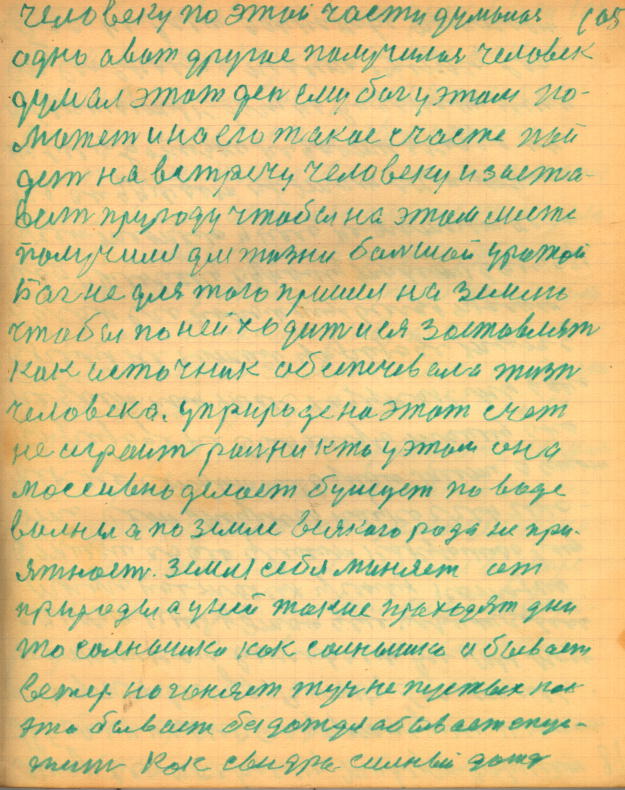 человеку по этой части думалая 105
одно авот другое получилая человек
думал этот ден ему бог у этом по-
может и на его такое счасте пой
дет на встречу человеку и заста-
вит природу чтобы на этом месте
получил для жизни болшой урожой
Бог не для того пришел на землю
чтобы по ней ходит и ея заставлят
как источник обеспечевала жизн
человека. у природе на этот счет
не играит рол никто у этом она
моссивно делает бушует по воде
волны а по земле всякого рода не при-
ятност. земля себя миняет от
природы а у ней такие проходят дни
то солнышко как солнышко а бывает
ветер нагоняет туч не пустых пок
это бывает без дождя а бывает спус-
тит как сведра силный дожд